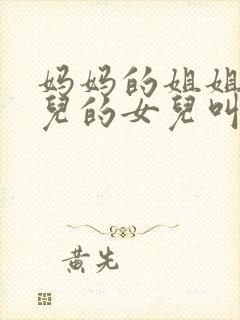 妈妈的姐姐
兒的女兒叫
黄先